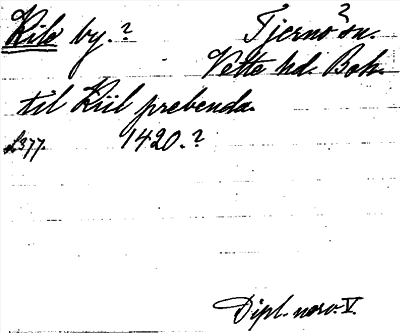 Kile by. ? Tjernö ? sn.
Vette hd. Boh.
til Kiil prebenda.
s. 377. 1420. ?
Dipl. norv. V.